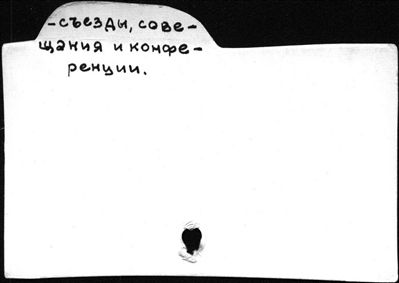 -съезды, сове-
щания и конфе-
ренции.